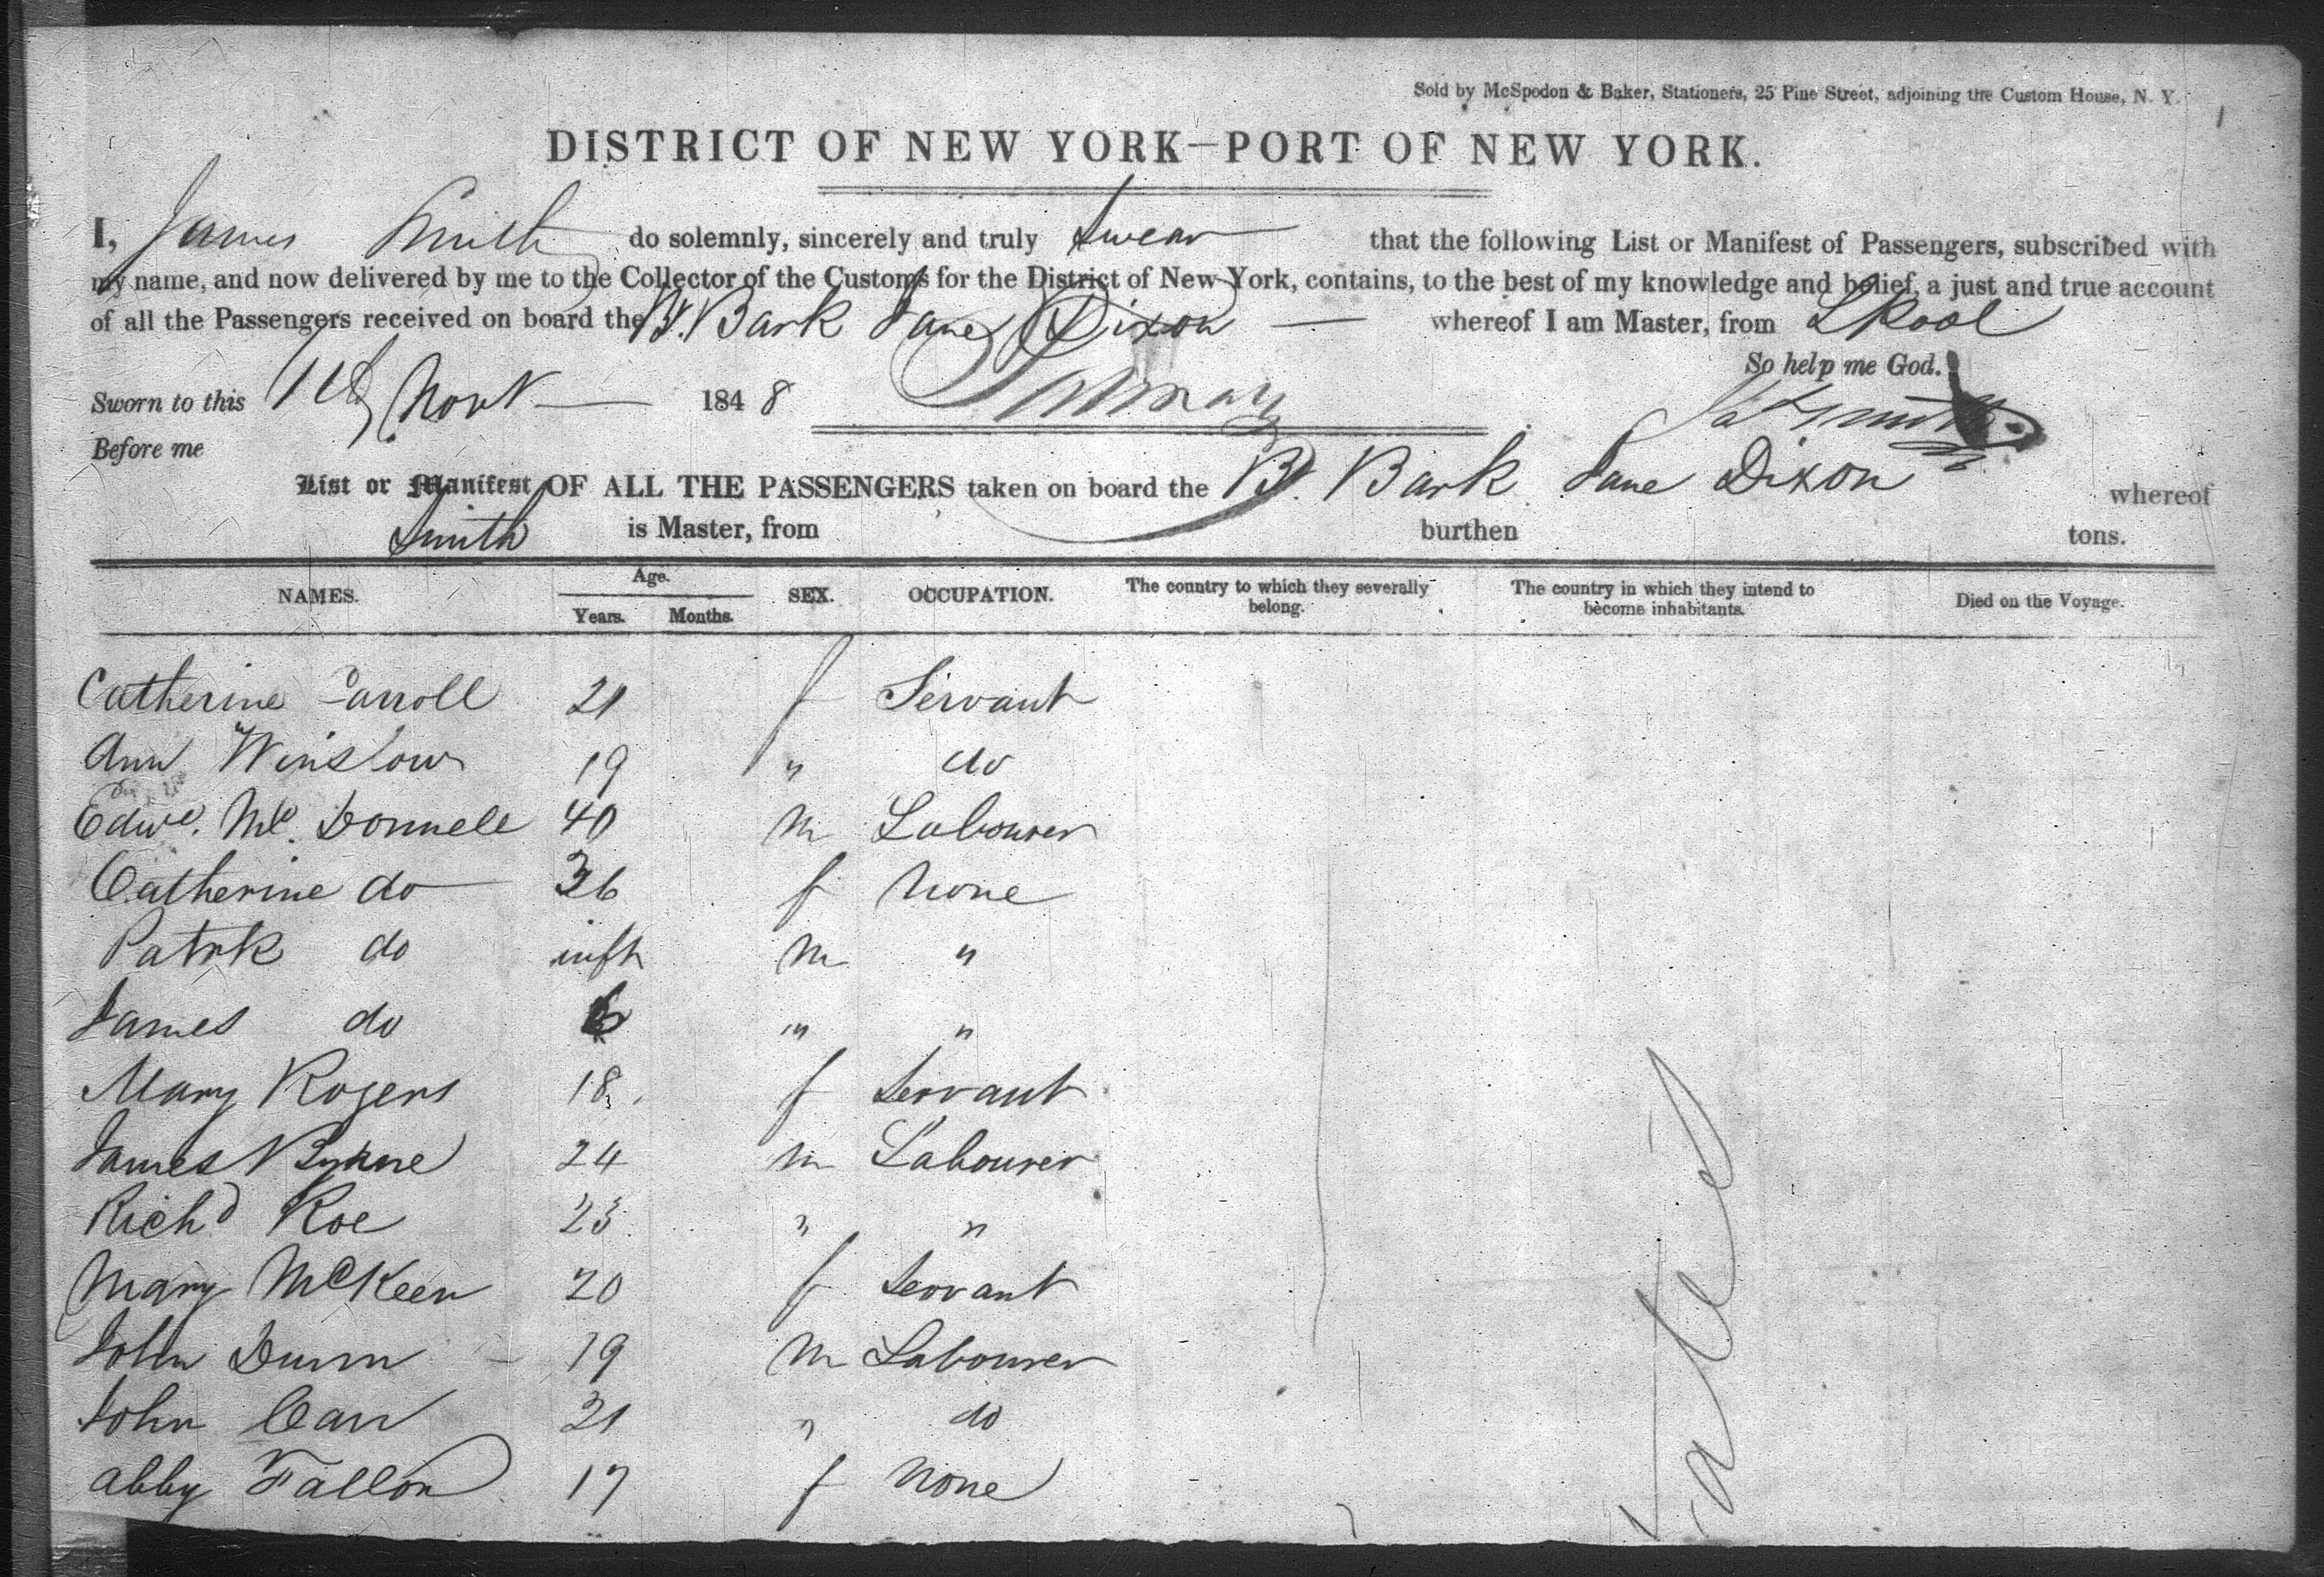 Sold by McSpedon & Baker, Stationers, 25 Pine Street, adjoining the Custom House, N. Y.
DISTRICT OF NEW YORK—PORT OF NEW YORK.
I, James Smith do solemnly, sincerely and truly swear that the following List or Manifest of Passengers, subscribed with
my name, and now delivered by me to the Collector of the Customs for the District of New York, contains, to the best of my knowledge and belief, a just and true account
of all the Passengers received on board the Br. Bark Jane Dixon whereof I am Master, from LPool
So help me God.
Sworn to this Novr 1848 Jas Smith
Before me
List or Manifest OF ALL THE PASSENGERS taken on board the Br. Bark Jane Dixon whereof
Smith is Master, from burthen tons.
NAMES. Age. Years. Months. SEX. OCCUPATION. The country to which they severally belong. The country in which they intend to become inhabitants. Died on the Voyage.
Catherine Carroll 21 f Servant
Ann Winslow 19 " do
Edwd. Mc. Donnell 40 m Labourer
Catherine do 36 f None
Patrk do inft m "
James do 6 " "
Mary Rogers 18 f Servant
James Byrne 24 m Labourer
Richd Roe 23 " "
Mary McKeen 20 f Servant
John Dunn 19 m Labourer
John Carr 21 " do
Abby Fallon 17 f None